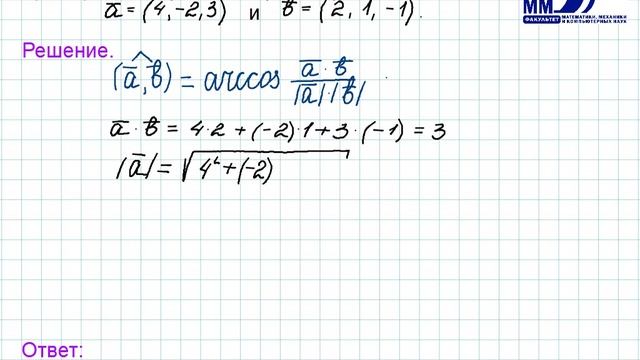 ā = (4, -2, 3) и b̄ = (2, 1, -1).
ММ
ФАКУЛЬТЕТ МАТЕМАТИКИ, МЕХАНИКИ И КОМПЬЮТЕРНЫХ НАУК
Решение.
(ā,^b̄) = arccos (ā · b̄)/(|ā| · |b̄|)
ā · b̄ = 4·2 + (-2)·1 + 3·(-1) = 3
|ā| = √(4² + (-2)
Ответ: